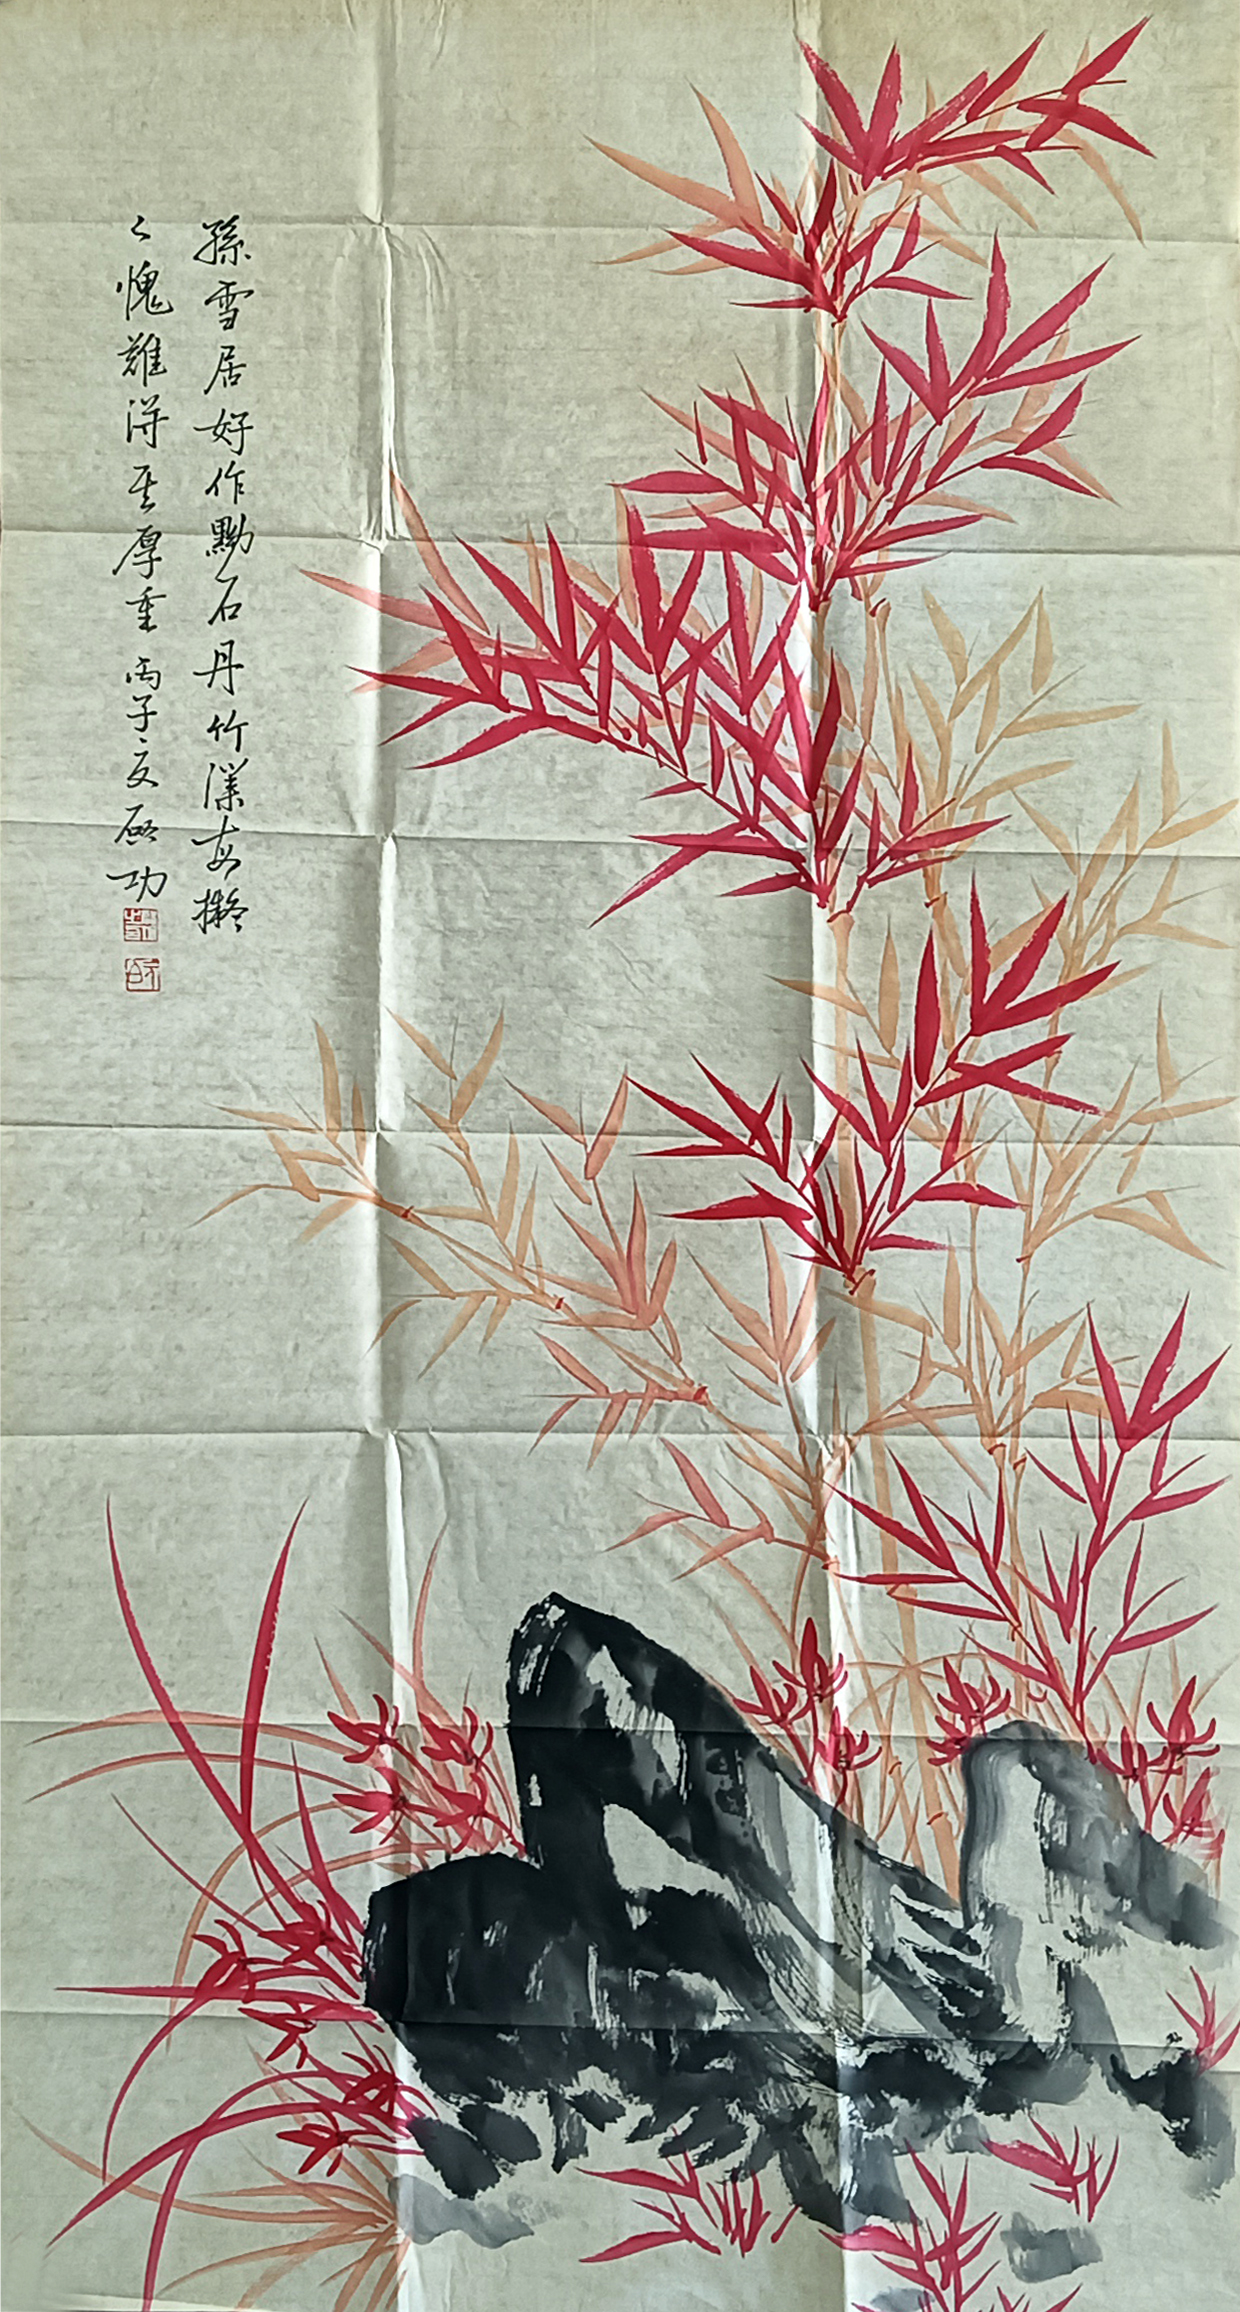 孫雪居好作黝石丹竹漢卿擬
之愧難得其厚重 丙子夏 啟功